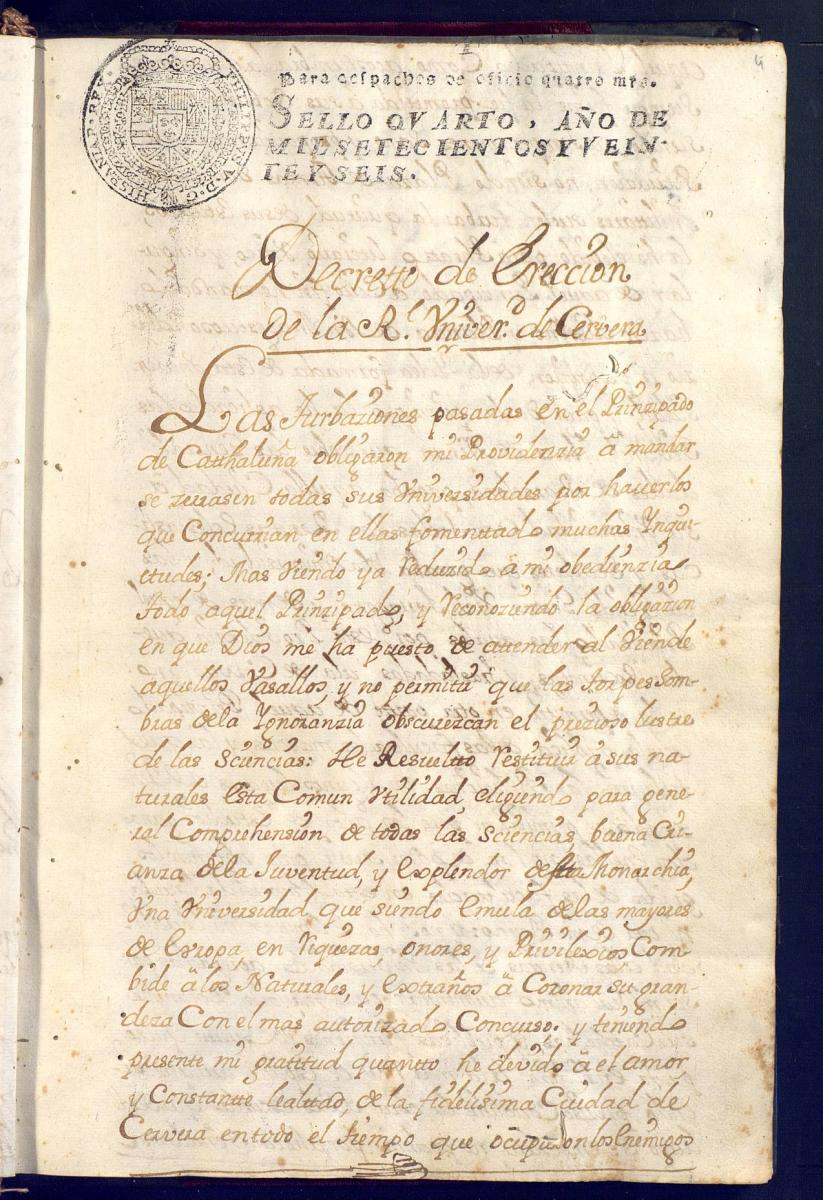 4
HISPANIAR. REX. PHILIPPUS V. D. G.
Para despachos de oficio quatro mrs.
SELLO QVARTO, AÑO DE
MIL SETECIENTOS Y VEIN-
TE Y SEIS.
Decretto de Ereccion
De la R.l Vniver.d de Cervera
Las turbaziones pasadas en el Prinzipado
de Catthaluña obligaron mi Providenzia â mandar
se zerrasen todas sus Vniversidades por haverlos
que Concurrian en ellas fomenttado muchas Ynqui-
ettudes; Mas viendo ya reduzido â mi obedienzia
todo aquel Prinzipado, y reconoziendo la obligazion
en que Dios me ha puesto de attender al viende
aquellos Vasallos, y no permitir que las torpes som-
bras dela Ygnoranzia obscurezcan el prezioso lustre
de las Sciencias: He Resueltto restituir â sus na-
turales esta Comun Vtilidad, eligiendo para gene-
ral Comprehension de todas las Sciencias, buena Cri-
anza dela Juventud, y explendor desta Monarchia,
Vna Vniversidad, que siendo emula de las mayores
de Europa, en riquezas, onores, y Privilexios, Com-
bide â los Naturales, y extraños â Coronar su gran-
deza Con el mas autorizado Concurso; y teniendo
presente mi gratitud quantto he devido â el amor,
y Constantte lealttad, de la fidelisima Ciudad de
Cervera en todo el tiempo que ocuparon los Enemigos